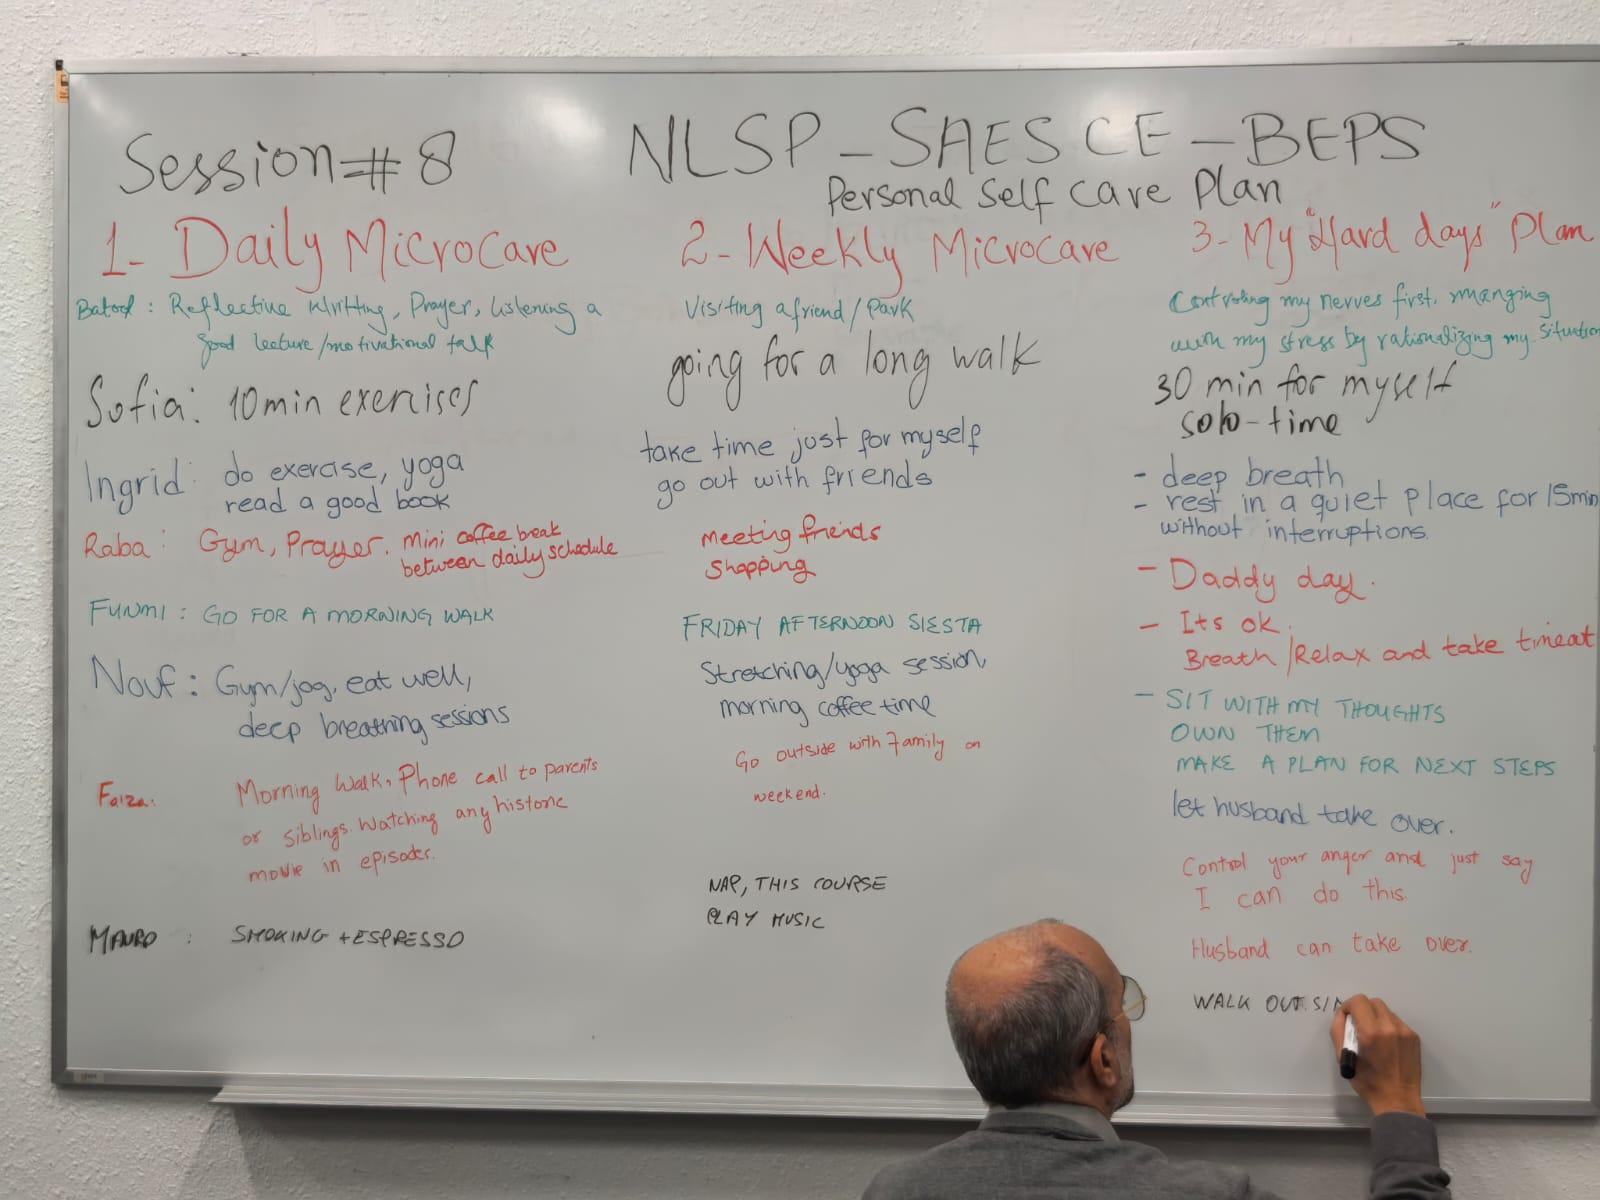 Session #8
NLSP - SAESCE - BEPS
Personal Self Care Plan
1- Daily Microcare
2- Weekly Microcare
3- My "Hard days" Plan
Batool: Reflective Writting, Prayer, Listening a
good lecture/motivational talk
Visiting a friend/Park
Controling my nerves first, manging
with my stress by rationalizing my situation
Sofia: 10 min exercises
going for a long walk
30 min for myself
solo-time
Ingrid: do exercise, yoga
read a good book
take time just for myself
go out with friends
- deep breath
- rest in a quiet place for 15min
without interruptions.
Raba: Gym, Prayer. Mini coffee break
between daily schedule
Meeting friends
Shopping
- Daddy day.
- Its ok.
Breath/Relax and take timeat
FUNMI: GO FOR A MORNING WALK
FRIDAY AFTERNOON SIESTA
- SIT WITH MY THOUGHTS
OWN THEM
MAKE A PLAN FOR NEXT STEPS
Nouf: Gym/jog, eat well,
deep breathing sessions
Stretching/yoga session,
morning coffee time
let husband take over.
Faiza: Morning Walk, Phone call to parents
or siblings. Watching any historic
movie in episodes.
Go outside with family on
weekend.
Control your anger and just say
I can do this.
Husband can take over.
MAURO: SMOKING + ESPRESSO
NAP, THIS COURSE
PLAY MUSIC
WALK OUT.SI